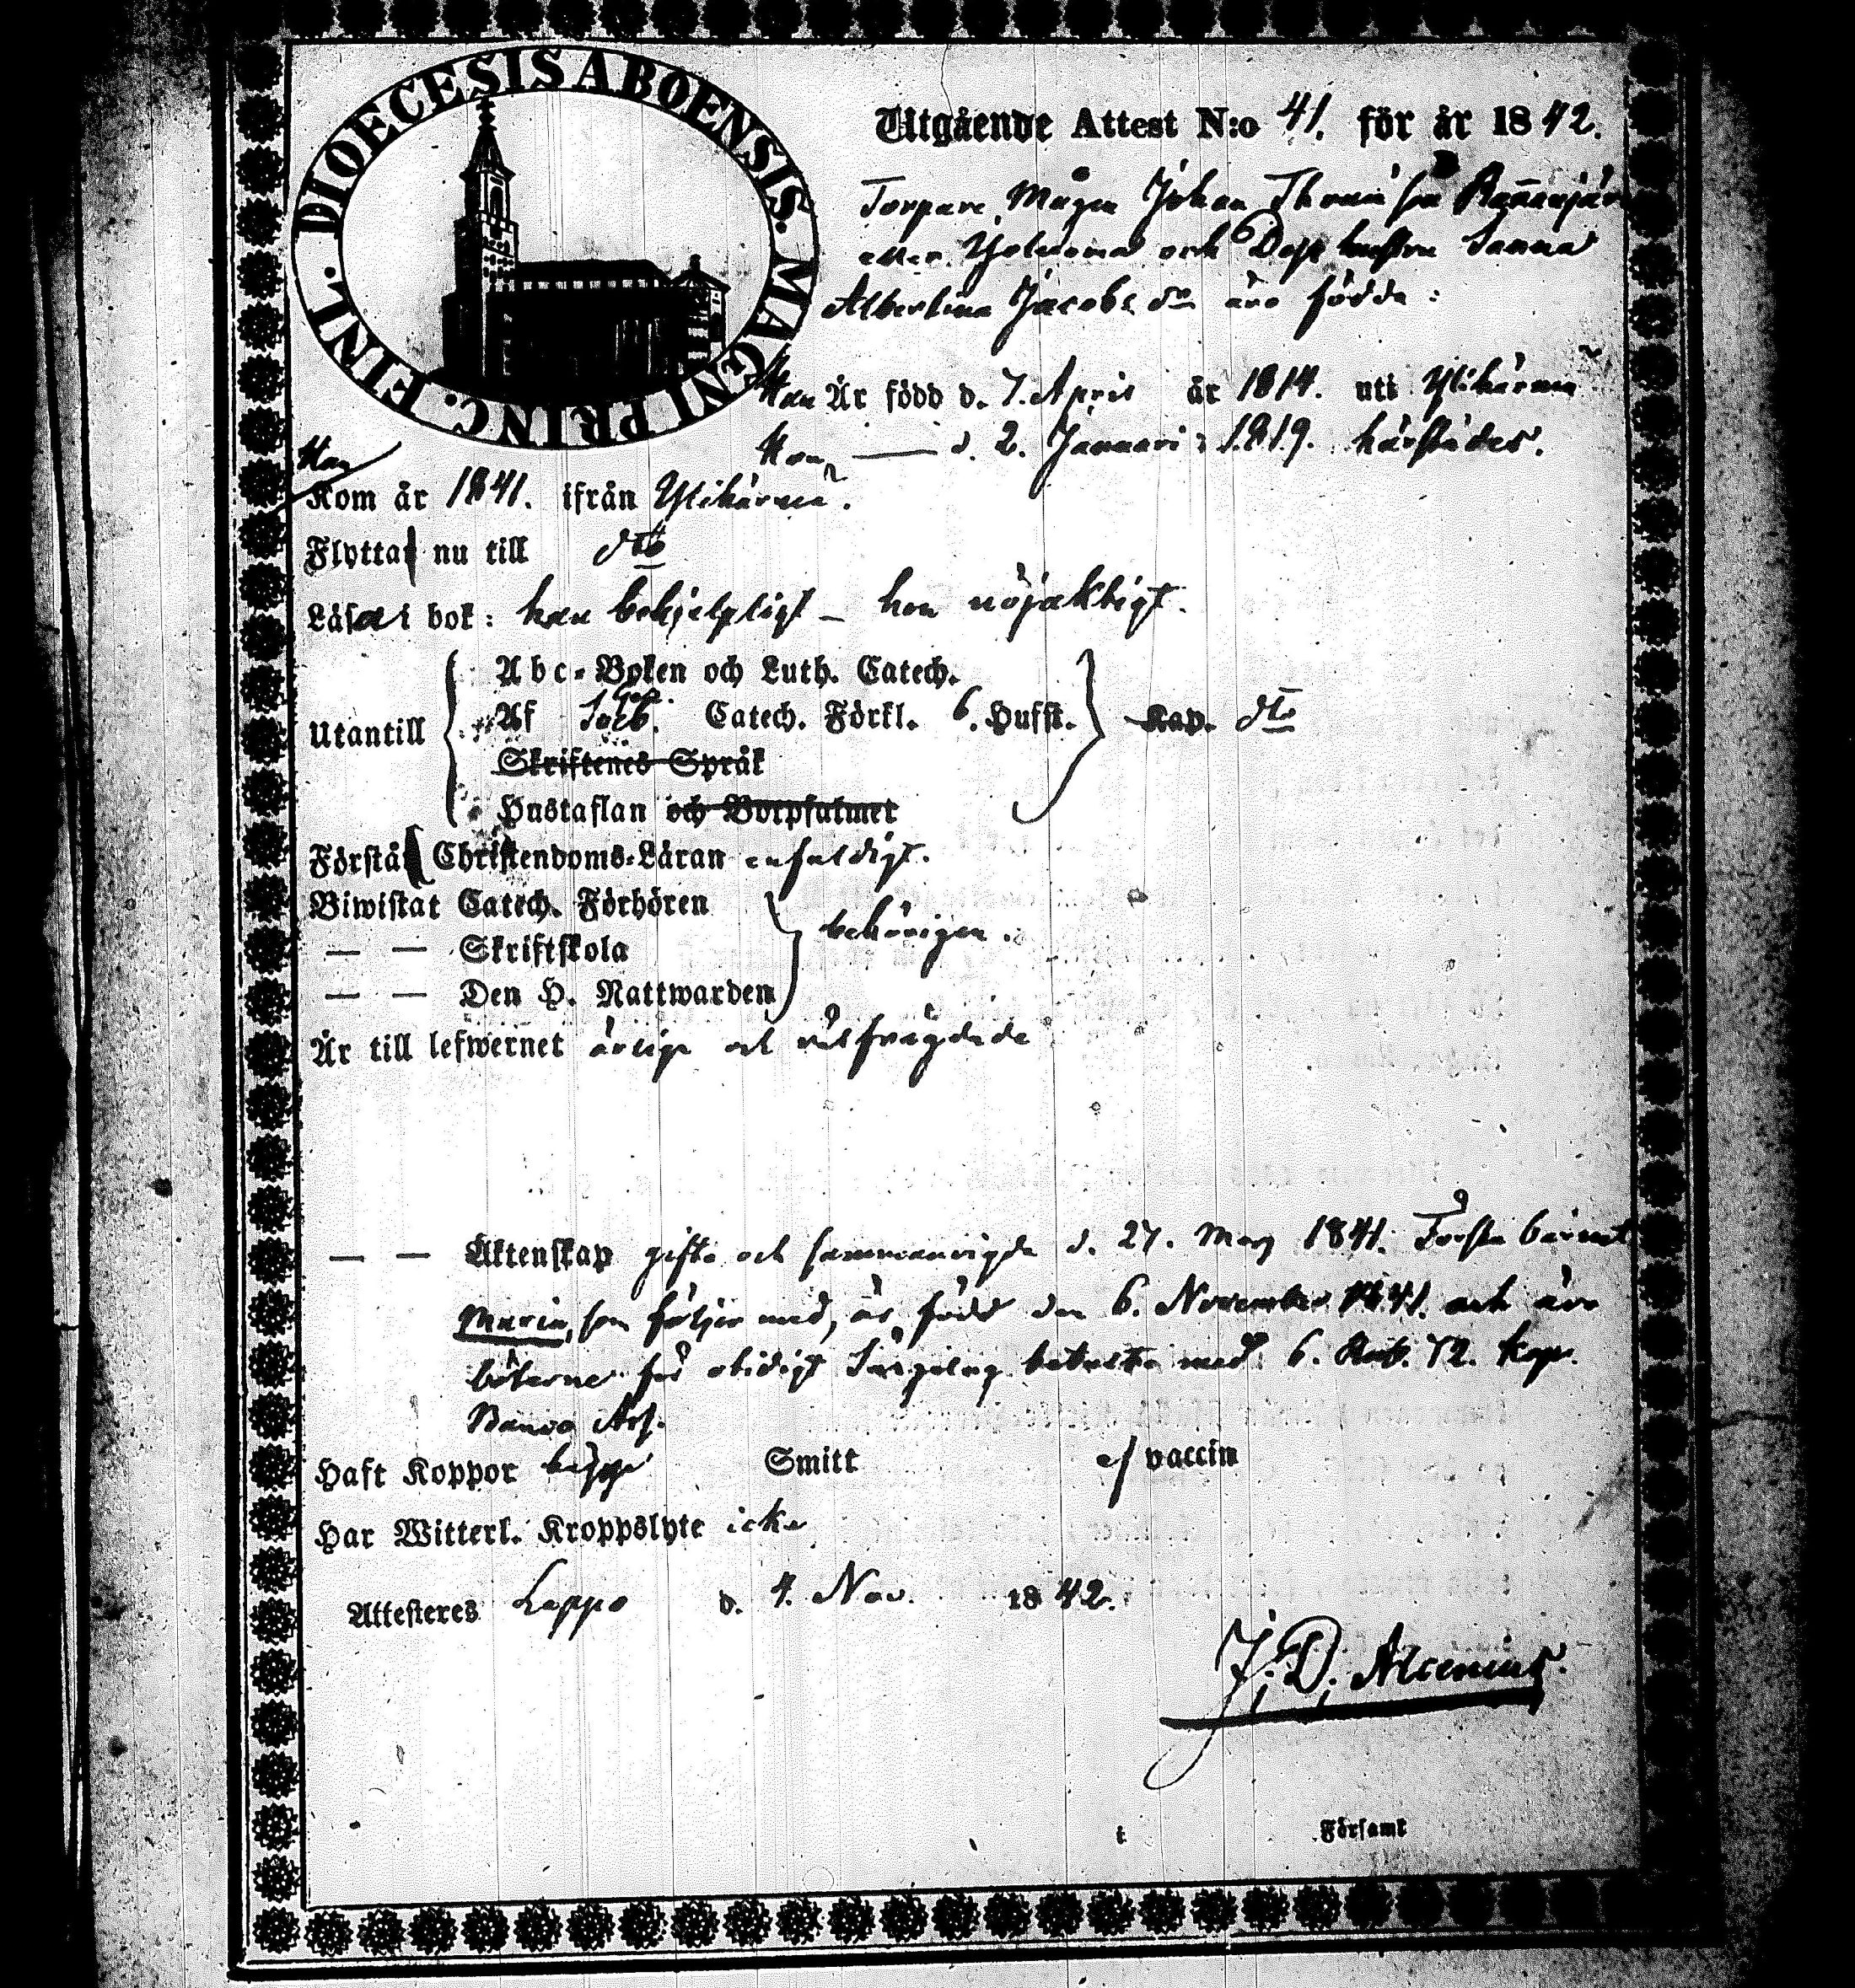 DIOECESIS ABOENSIS. MAGNI PRINC. FINL.
Utgående Attest N:o 41. för år 1842.
Torpare Mågen Johan Thomæ son
eller och Dess hustru Sanna
Albertina Jacobs dr äro födde:
Han Är född d. 7. April år 1814. uti Ylihärmä
Hon — d. 2. Januari 1819. härstädes.
Han
Kom år 1841. ifrån Ylihärmä.
Flytta nu till dto
Läsa i bok: han behjelpligt – hon nöjaktigt.
Utantill
Abc-Boken och Luth. Catech.
Af Catech. Förkl. 6. Hufst. Kap. dto
Skriftenes Språk
Hustaflan och Botpsalmer
Förstå Christendoms-Läran enfaldigt.
Biwistat Catech. Förhören
— — Skriftskola behörigen.
— — Den H. Nattwarden
Är till lefwernet ärlige och välfrägdade
— — Äktenskap gifte och sammanvigde d. 27. Mars 1841. Första barnet
Maria, som följer med, är född den 6. November 1841. och äro
böterne för otidigt Sängelag betalte med 6. Rub. 72. kop.
Banco Ass.
Haft Koppor bägge Smitt ej vaccin
Har Witterl. Kroppslyte icke
Attesteres Lappo d. 4. Nov. 1842.
J. D. Alcenius.
i Församl